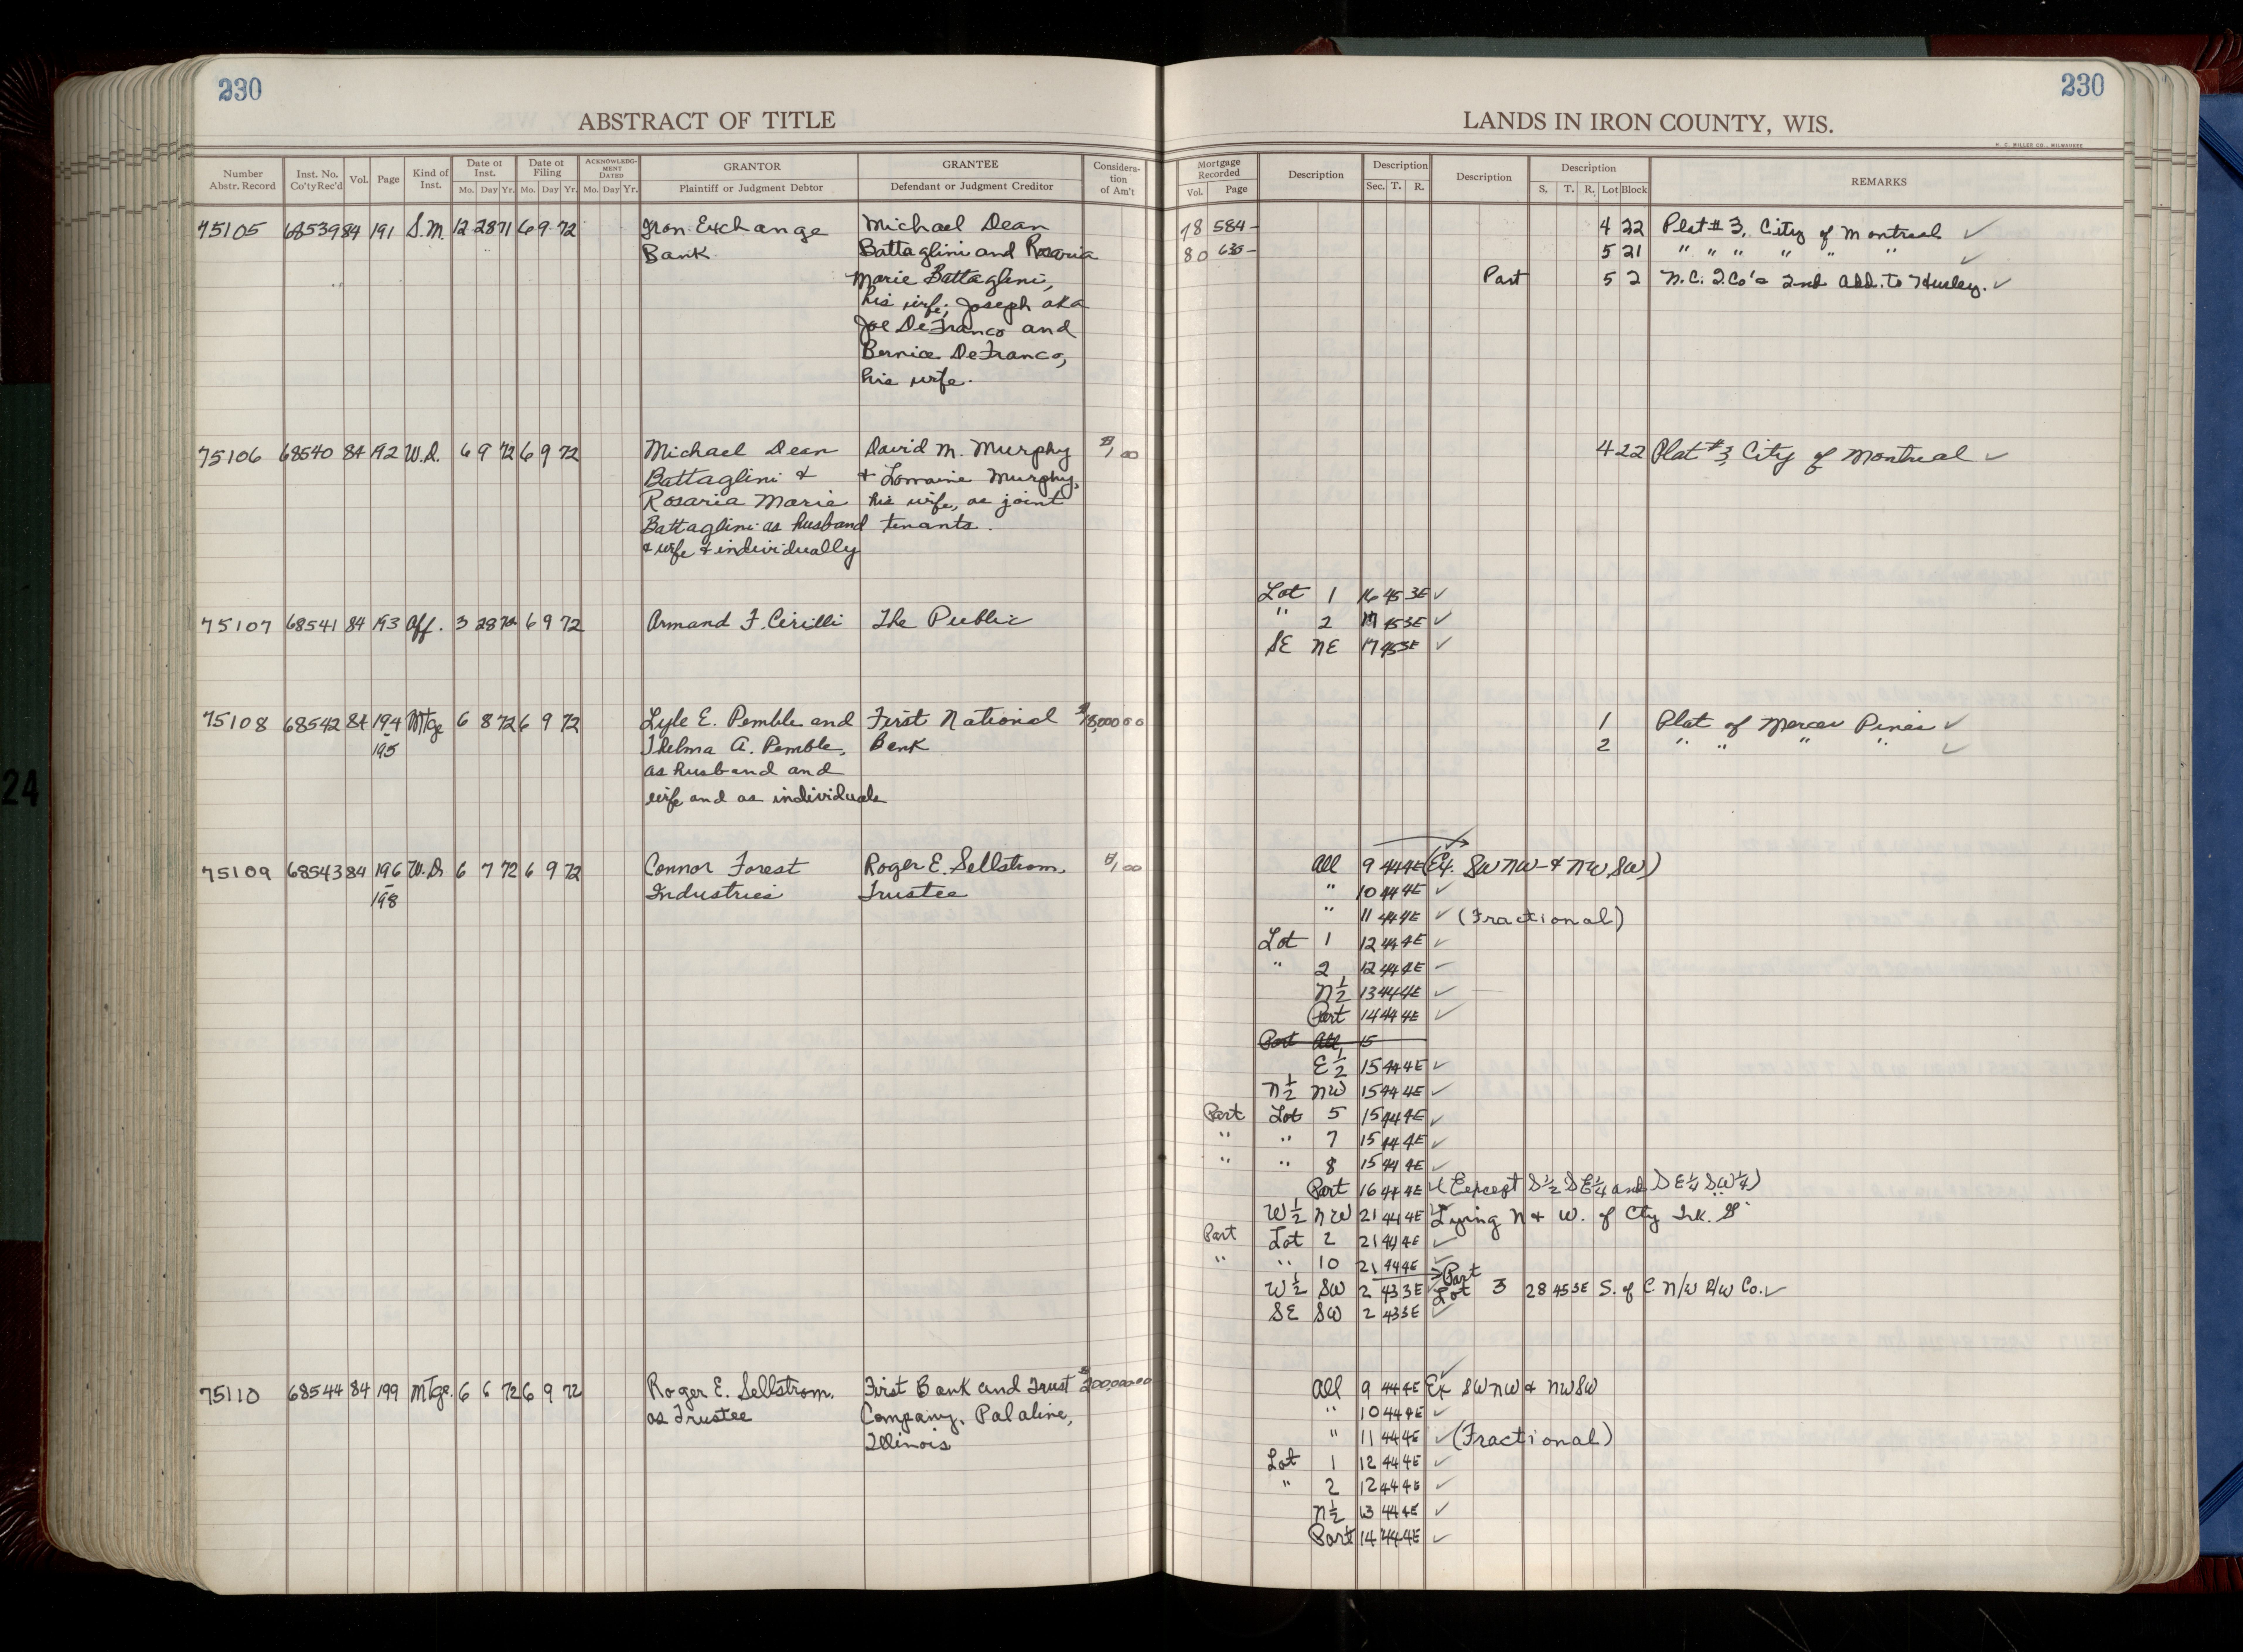 230
ABSTRACT OF TITLE
Number Abstr. Record | Inst. No. Co'ty Rec'd | Vol. | Page | Kind of Inst. | Date of Inst. Mo. Day Yr. | Date of Filing Mo. Day Yr. | ACKNOWLEDGMENT DATED Mo. Day Yr. | GRANTOR Plaintiff or Judgment Debtor | GRANTEE Defendant or Judgment Creditor | Consideration of Am't
75105 68539 84 191 S.M. 12 28 71 6 9 72 Iron Exchange Michael Dean
Bank Battaglini and Rosaria
Marie Battaglini,
his wife; Joseph aka
Joe DeFranco and
Bernice DeFranco,
his wife.
75106 68540 84 192 W.D. 6 9 72 6 9 72 Michael Dean David M. Murphy $1.00
Battaglini & & Lorraine Murphy,
Rosaria Marie his wife, as joint
Battaglini as husband tenants.
& wife & individually
75107 68541 84 193 Aff. 3 28 72 6 9 72 Armand F. Cirilli The Public
75108 68542 84 194 Mtge 6 8 72 6 9 72 Lyle E. Pemble and First National
- 195 Thelma A. Pemble, Bank
as husband and
wife and as individuals
75109 68543 84 196 W.D. 6 7 72 6 9 72 Connor Forest Roger E. Sellstrom, $1.00
- 198 Industries Trustee
75110 68544 84 199 Mtge. 6 6 72 6 9 72 Roger E. Sellstrom, First Bank and Trust $200,000.00
as Trustee Company, Palatine,
Illinois
24
230
LANDS IN IRON COUNTY, WIS.
H. C. MILLER CO., MILWAUKEE
Mortgage Recorded Vol. Page | Description | Description Sec. T. R. | Description | Description S. T. R. Lot Block | REMARKS
78 584- 4 22 Plat # 3, City of Montreal ✓
80 635- 5 21 " " " " " " ✓
Part 5 2 N.C. I. Co's 2nd Add. to Hurley. ✓
4 22 Plat # 3, City of Montreal ✓
Lot 1 16 45 3E ✓
" 2 45 3E ✓
SE NE 17 45 3E ✓
1 Plat of Mercer Pines ✓
2 " " " " ✓
All 9 44 4E (Ex. SW NW & NW SW)
" 10 44 4E ✓
" 11 44 4E ✓ (Fractional)
Lot 1 12 44 4E ✓
" 2 12 44 4E ✓
N½ 13 44 4E ✓
Part 14 44 4E ✓
Part All 15
E½ 15 44 4E ✓
N½ NW 15 44 4E ✓
Part Lot 5 15 44 4E ✓
" " 7 15 44 4E ✓
" " 8 15 44 4E ✓
Part 16 44 4E ✓ (Except S½ SE¼ and SE¼ SW¼)
W½ NW 21 44 4E Lying N & W. of Cty Trk. G
Part Lot 2 21 44 4E ✓
" " 10 21 44 4E ✓
W½ SW 2 43 3E ✓ Part Lot 3 28 45 3E S. of C. N/W R/W Co. ✓
SE SW 2 43 3E ✓
All 9 44 4E Ex SW NW & NW SW
" 10 44 4E ✓
" 11 44 4E ✓ (Fractional)
Lot 1 12 44 4E ✓
" 2 12 44 4E ✓
N½ 13 44 4E ✓
Part 14 44 4E ✓